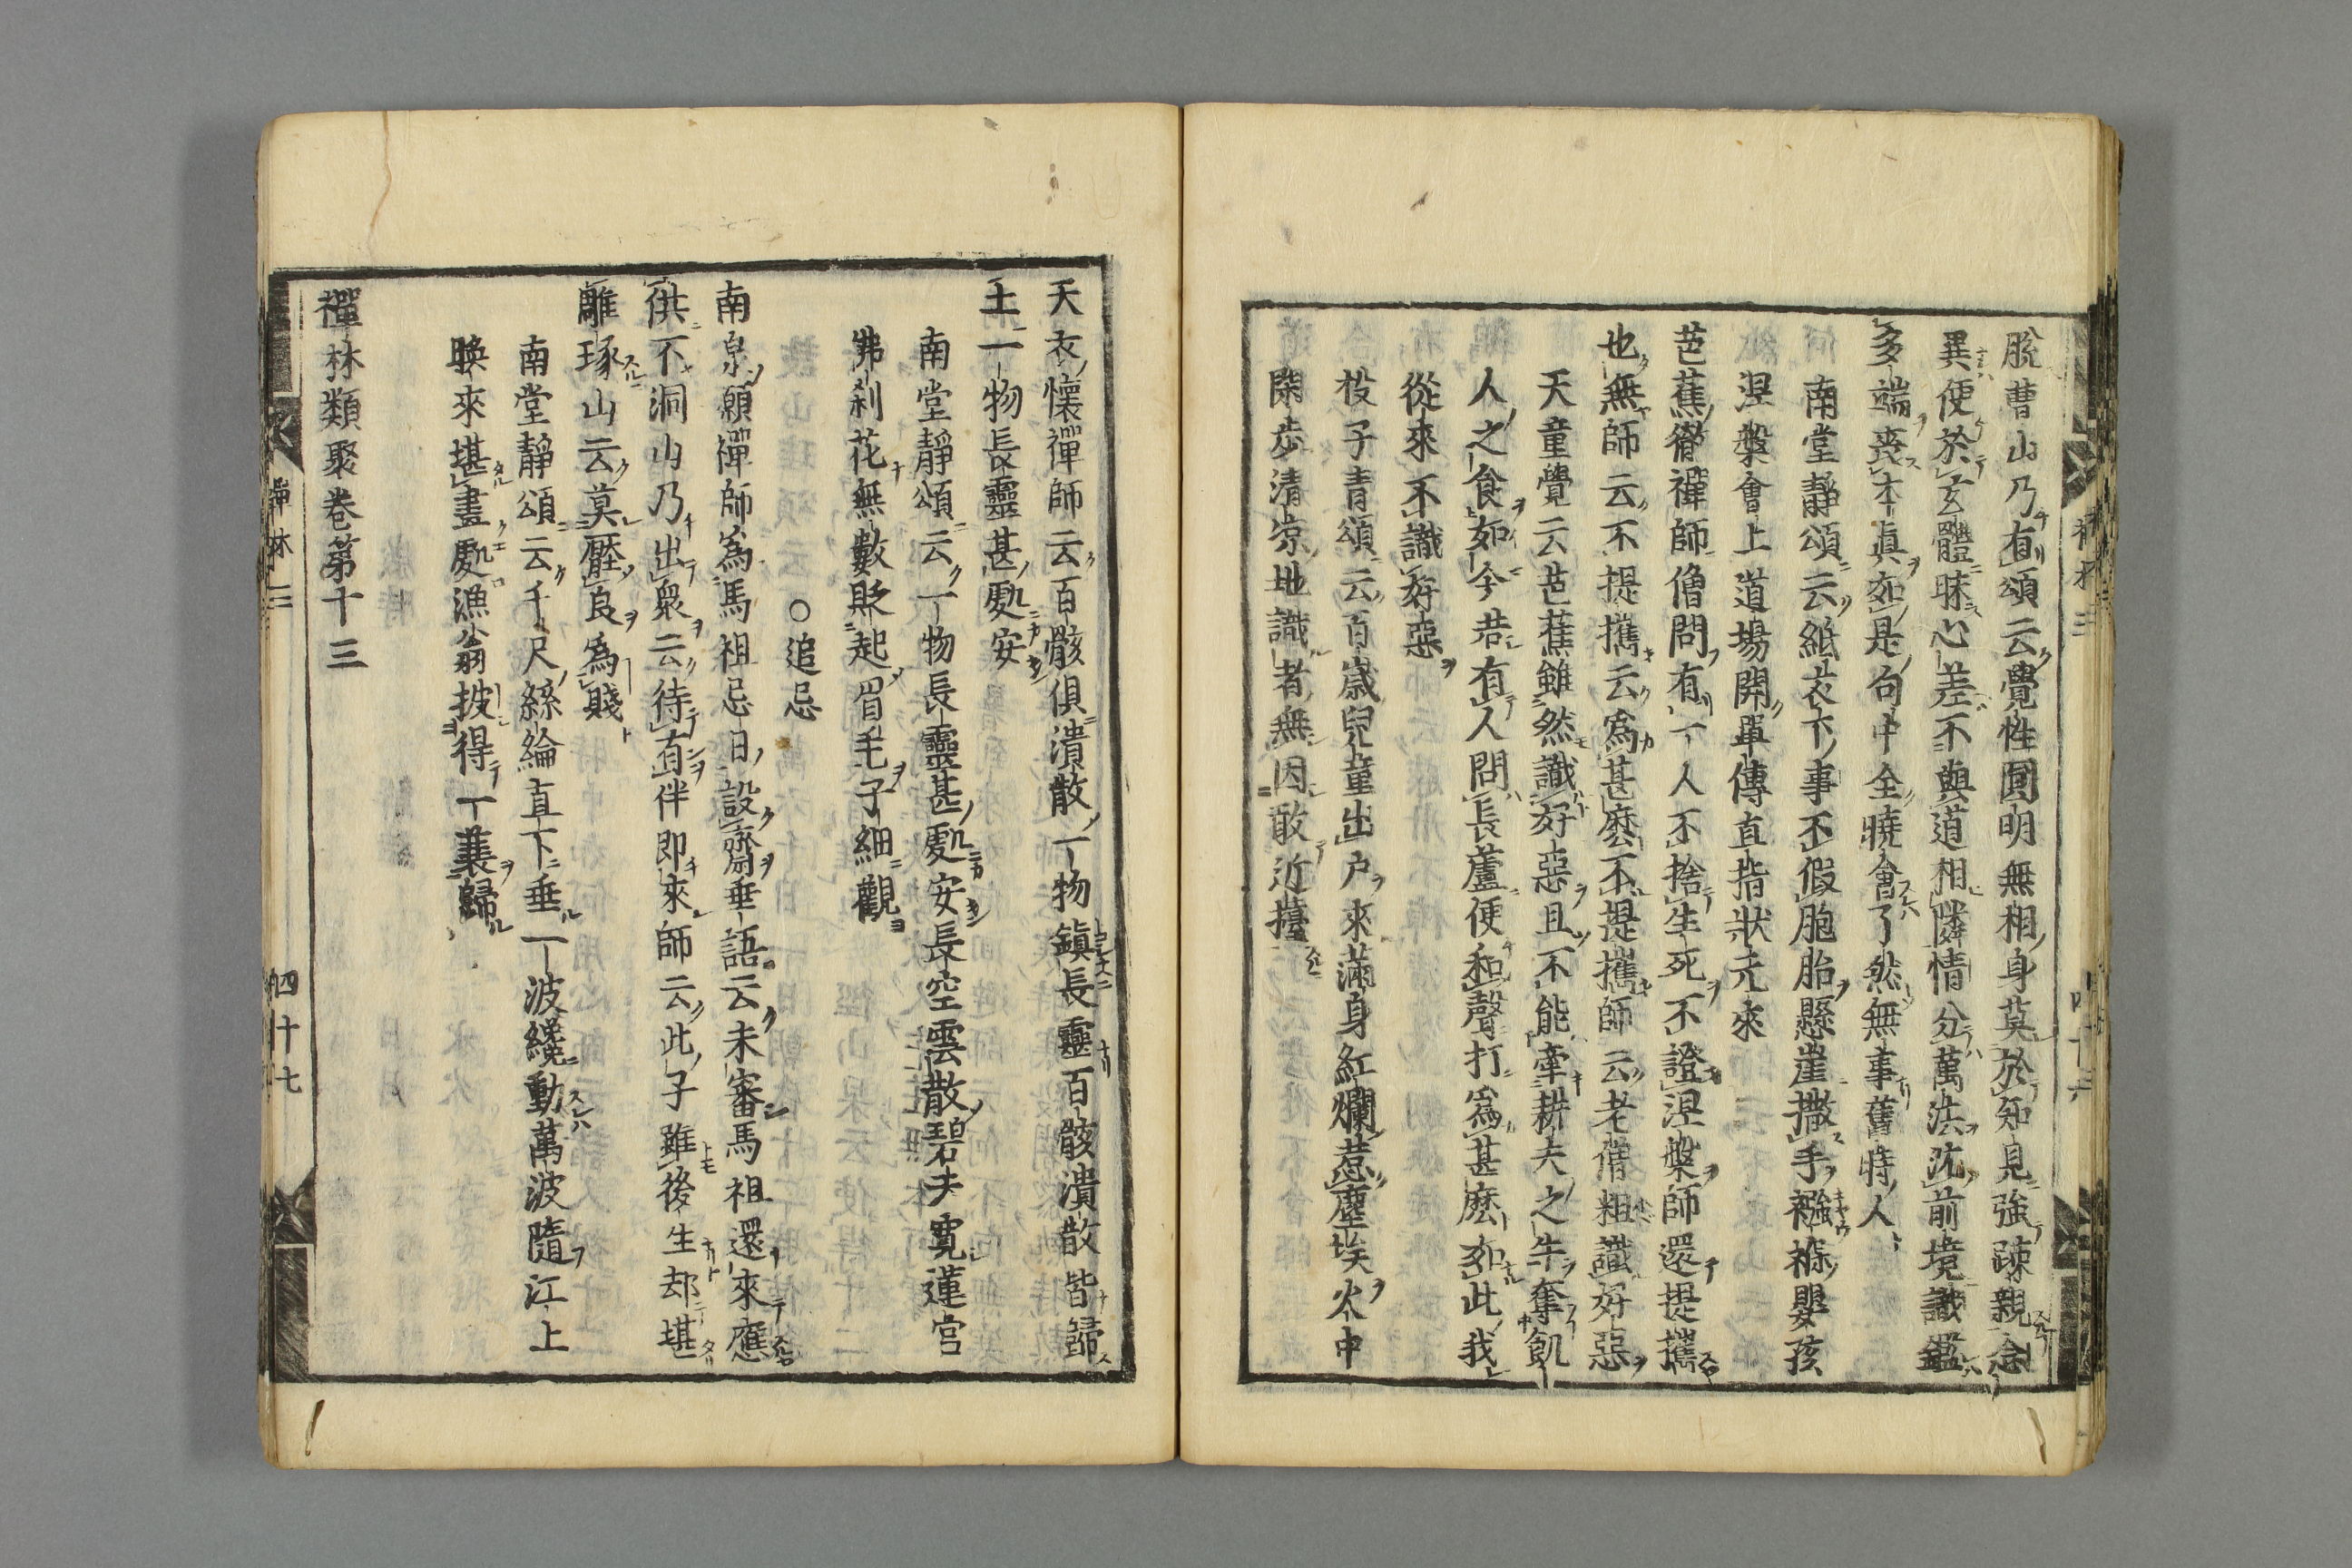 脫曹山乃有頌云覺性圓明無相身莫於知見強疎親念
異便於玄體昧心差不與道相隣情分萬法沈前境識鑑
多端喪本眞如是句中全曉會了然無事舊時人
南堂靜頌云紙衣下事不假胞胎懸崖撒手襁褓嬰孩
涅槃會上道場開單傳直指狀元來
芭蕉徹禪師僧問有一人不捨生死不證涅槃師還提攜
也無師云不提攜云爲甚麽不提攜師云老僧粗識好惡
天童覺云芭蕉雖然識好惡且不能牽耕夫之牛奪飢
人之食如今若有人問長蘆便和聲打爲甚麽如此我
從來不識好惡
投子青頌云百歲兒童出戶來滿身紅爛惹塵埃火中
閑步清凉地識者無因敢近擡
天衣懷禪師云百骸俱潰散一物鎭長靈百骸潰散皆歸
土一物長靈甚處安
南堂靜頌云一物長靈甚處安長空雲散碧天寬蓮宮
佛刹花無數貶起眉毛子細觀
○追忌
南泉願禪師爲馬祖忌日設齋垂語云未審馬祖還來應
供不洞山乃出衆云待有伴即來師云此子雖後生却堪
雕琢山云莫壓良爲賤
南堂靜頌云千尺絲綸直下垂一波纔動萬波隨江上
晚來堪畫處漁翁披得一蓑歸
禪林類聚卷第十三
禪林三
四十七